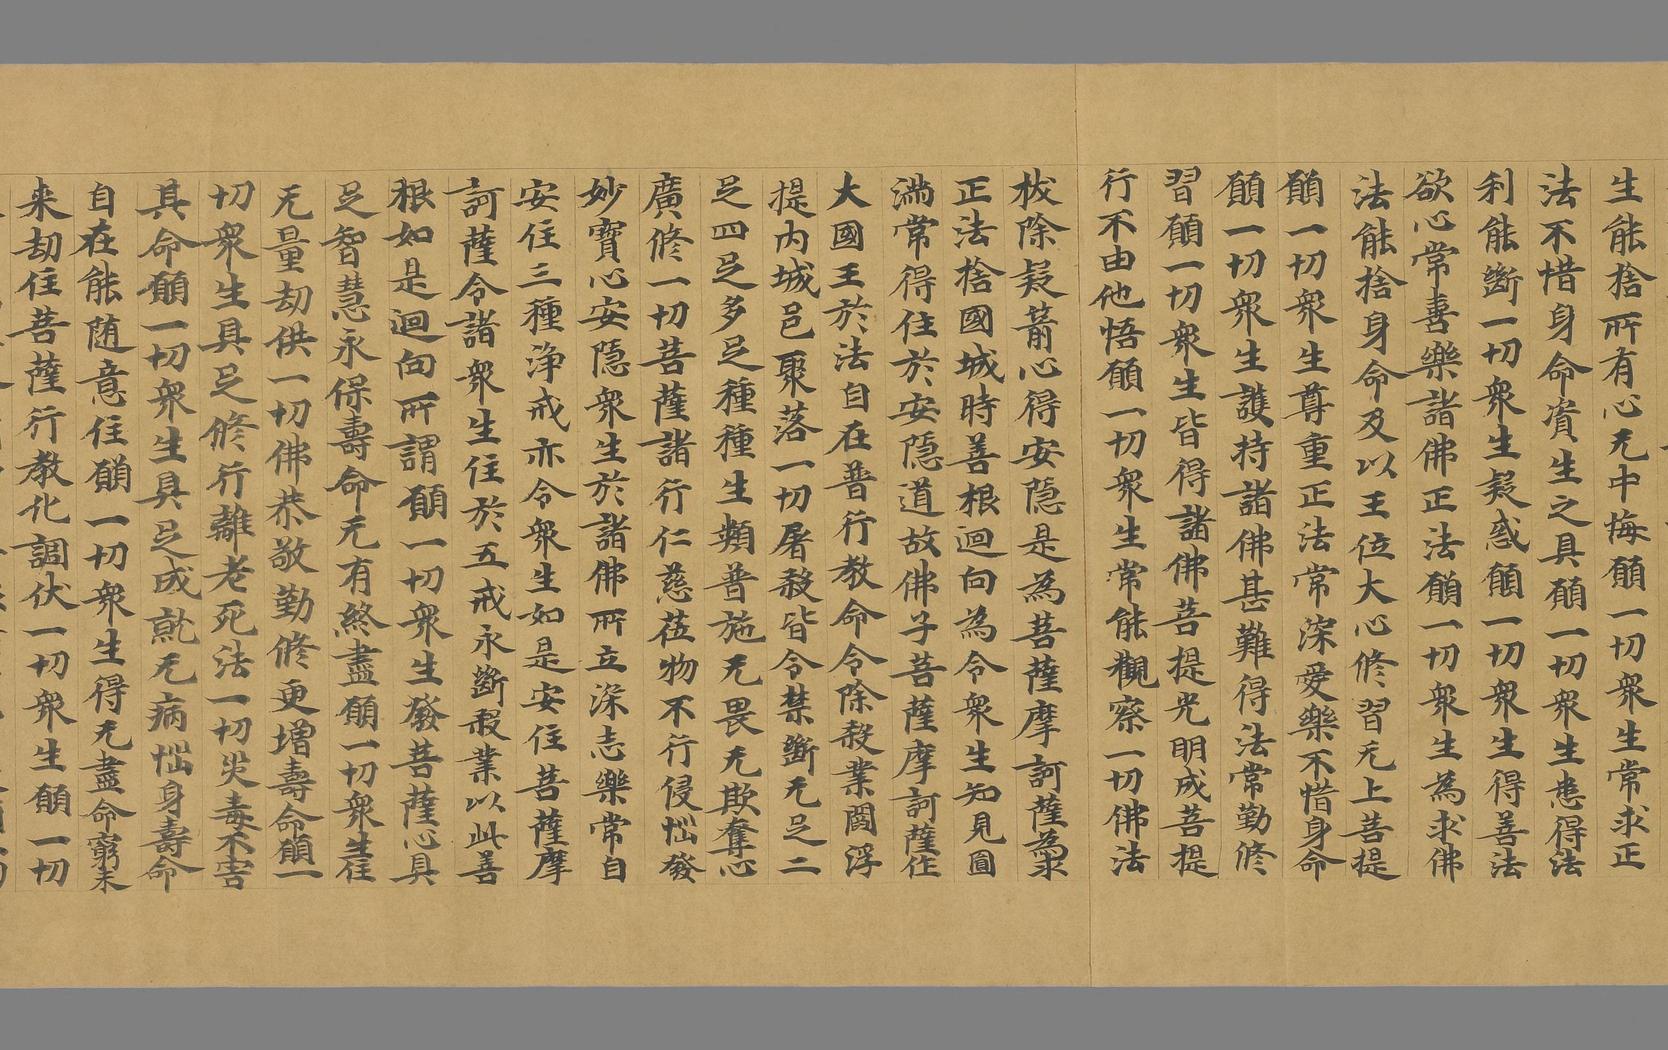 生能捨所有心无中悔願一切衆生常求正
法不惜身命資生之具願一切衆生悉得法
利能斷一切衆生疑惑願一切衆生得善法
欲心常喜樂諸佛正法願一切衆生為求佛
法能捨身命及以王位大心修習无上菩提
願一切衆生尊重正法常深愛樂不惜身命
願一切衆生護持諸佛甚難得法常勤修
習願一切衆生皆得諸佛菩提光明成菩提
行不由他悟願一切衆生常能觀察一切佛法
拔除疑箭心得安隠是為菩薩摩訶薩為求
正法捨國城時善根迴向為令衆生知見圓
滿常得住於安隠道故佛子菩薩摩訶薩作
大國王於法自在普行教命令除殺業閻浮
提内城邑聚落一切屠殺皆令禁斷无足二
足四足多足種種生類普施无畏无欺奪心
廣修一切菩薩諸行仁慈莅物不行侵惱發
妙寳心安隠衆生於諸佛所立深志樂常自
安住三種浄戒亦令衆生如是安住菩薩摩
訶薩令諸衆生住於五戒永斷殺業以此善
根如是迴向所謂願一切衆生發菩薩心具
足智慧永保壽命无有終盡願一切衆生住
无量劫供一切佛恭敬勤修更増壽命願一
切衆生具足修行離老死法一切灾毒不害
其命願一切衆生具足成就无病惱身壽命
自在能随意住願一切衆生得无盡命窮未
来劫住菩薩行教化調伏一切衆生願一切